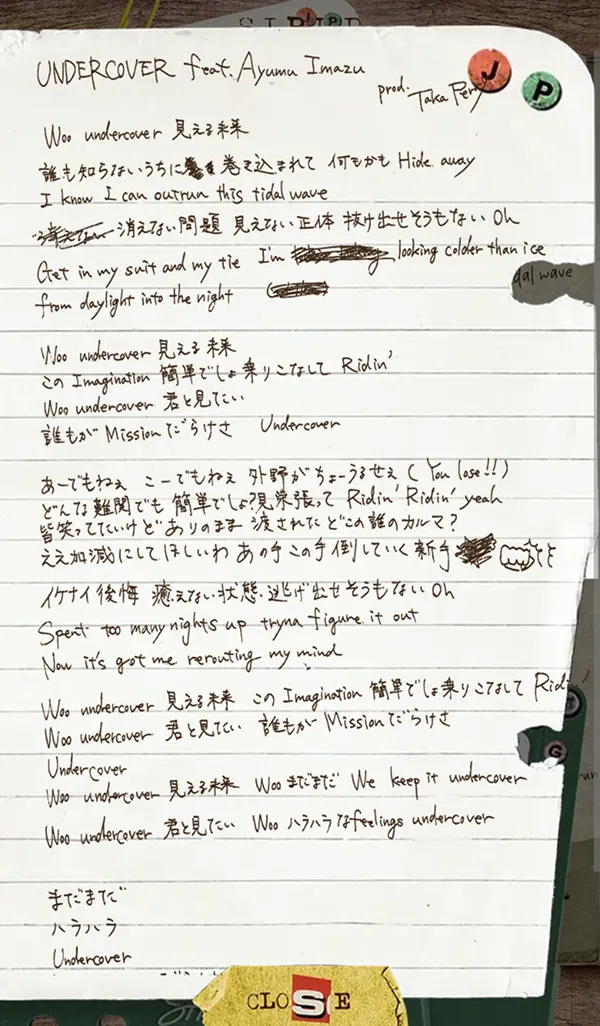 UNDERCOVER feat. Ayumu Imazu
prod. Taka Perry
J
P
Woo undercover 見える未来
誰も知らないうちに 巻き込まれて 何もかも Hide away
I know I can outrun this tidal wave
消えない問題 見えない正体 抜け出せそうもない Oh
Get in my suit and my tie I'm looking colder than ice
dal wave
from daylight into the night
Woo undercover 見える未来
この Imagination 簡単でしょ 乗りこなして Ridin'
Woo undercover 君と見てたい
誰もが Mission だらけさ Undercover
あーでもねぇ こーでもねぇ 外野がちょーうるせぇ (You lose!!)
どんな難関でも 簡単でしょ?見栄張って Ridin' Ridin' yeah
皆笑ってたいけど ありのまま 渡された どこの誰のカルマ?
ええ加減にしてほしいわ あの手この手 倒していく 新手
イケナイ後悔 癒えない状態 逃げ出せそうもない Oh
Spent too many nights up tryna figure it out
Now it's got me rerouting my mind
Woo undercover 見える未来 この Imagination 簡単でしょ 乗りこなして Ridin'
Woo undercover 君と見てたい 誰もが Mission だらけさ
Undercover
G
Woo undercover 見える未来 Woo まだまだ We keep it undercover
Woo undercover 君と見てたい Woo ハラハラなfeelings undercover
まだまだ
ハラハラ
Undercover
CLOSE